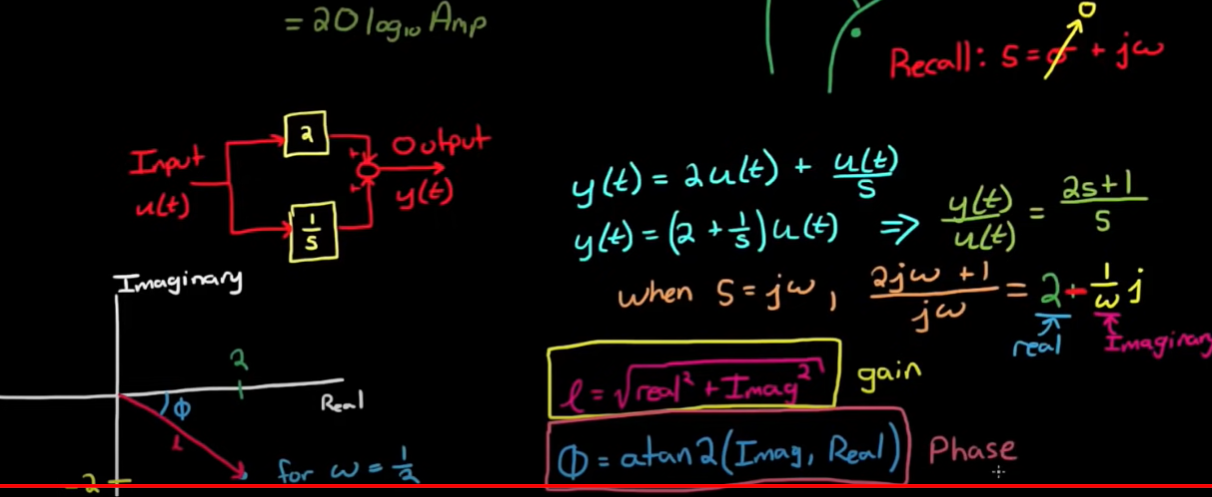 = 20 log₁₀ Amp
0
Recall: s = σ + jω
Input
u(t)
2
1/s
+
+
Output
y(t)
y(t) = 2u(t) + u(t)/s
y(t) = (2 + 1/s)u(t) ⇒ y(t)/u(t) = 2s+1/s
when s = jω, 2jω + 1/jω = 2 - 1/ω j
real
Imaginary
Imaginary
2
Real
φ
l
for ω = 1/2
-2
l = √real² + Imag²
gain
Φ = atan2(Imag, Real)
Phase